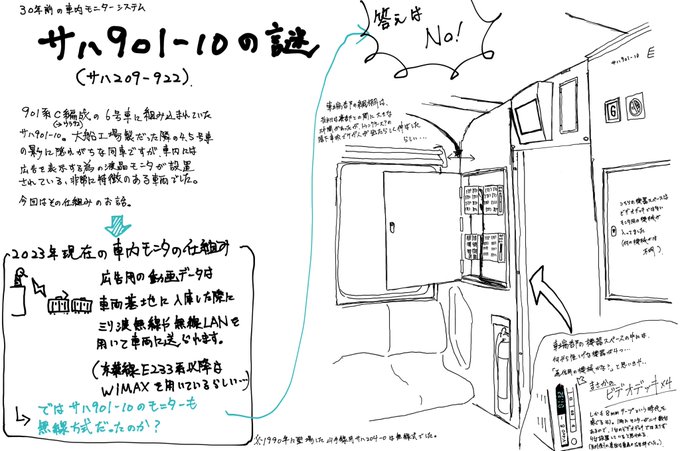 30年前の車内モニターシステム
サハ901-10の謎
(サハ209-922).
901系C編成の6号車に組み込まれていた
サハ901-10。大船工場製だった隣の4,5号車
の影に隠れがちな同車ですが、車内には
広告を表示する為の液晶モニタが設置
されている、非常に特徴のある車両でした。
今回はその仕組みのお話。
2023年現在の車内モニタの仕組み
広告用の動画データは
車両基地に入庫した際に
ミリ波無線や無線LANを
用いて車両に送られます。
(京葉線E233系以降は
WIMAXを用いているらしい…)
ではサハ901-10のモニターも
無線方式だったのか?
答えは
No!
サハ901-10
E
6
こちらの機器スペースは
ビデオデッキではなく
モニタ用の機械が
入ってました
(何の機械かは
不明)
車端部の機器スペースの中には、
何やら怪しげな機器が4つ…
まさかの
ビデオデッキ×4
しかも8mmテープという時代を
感じる
※1990年に登場した山手線サハ204-0は無線式でした。